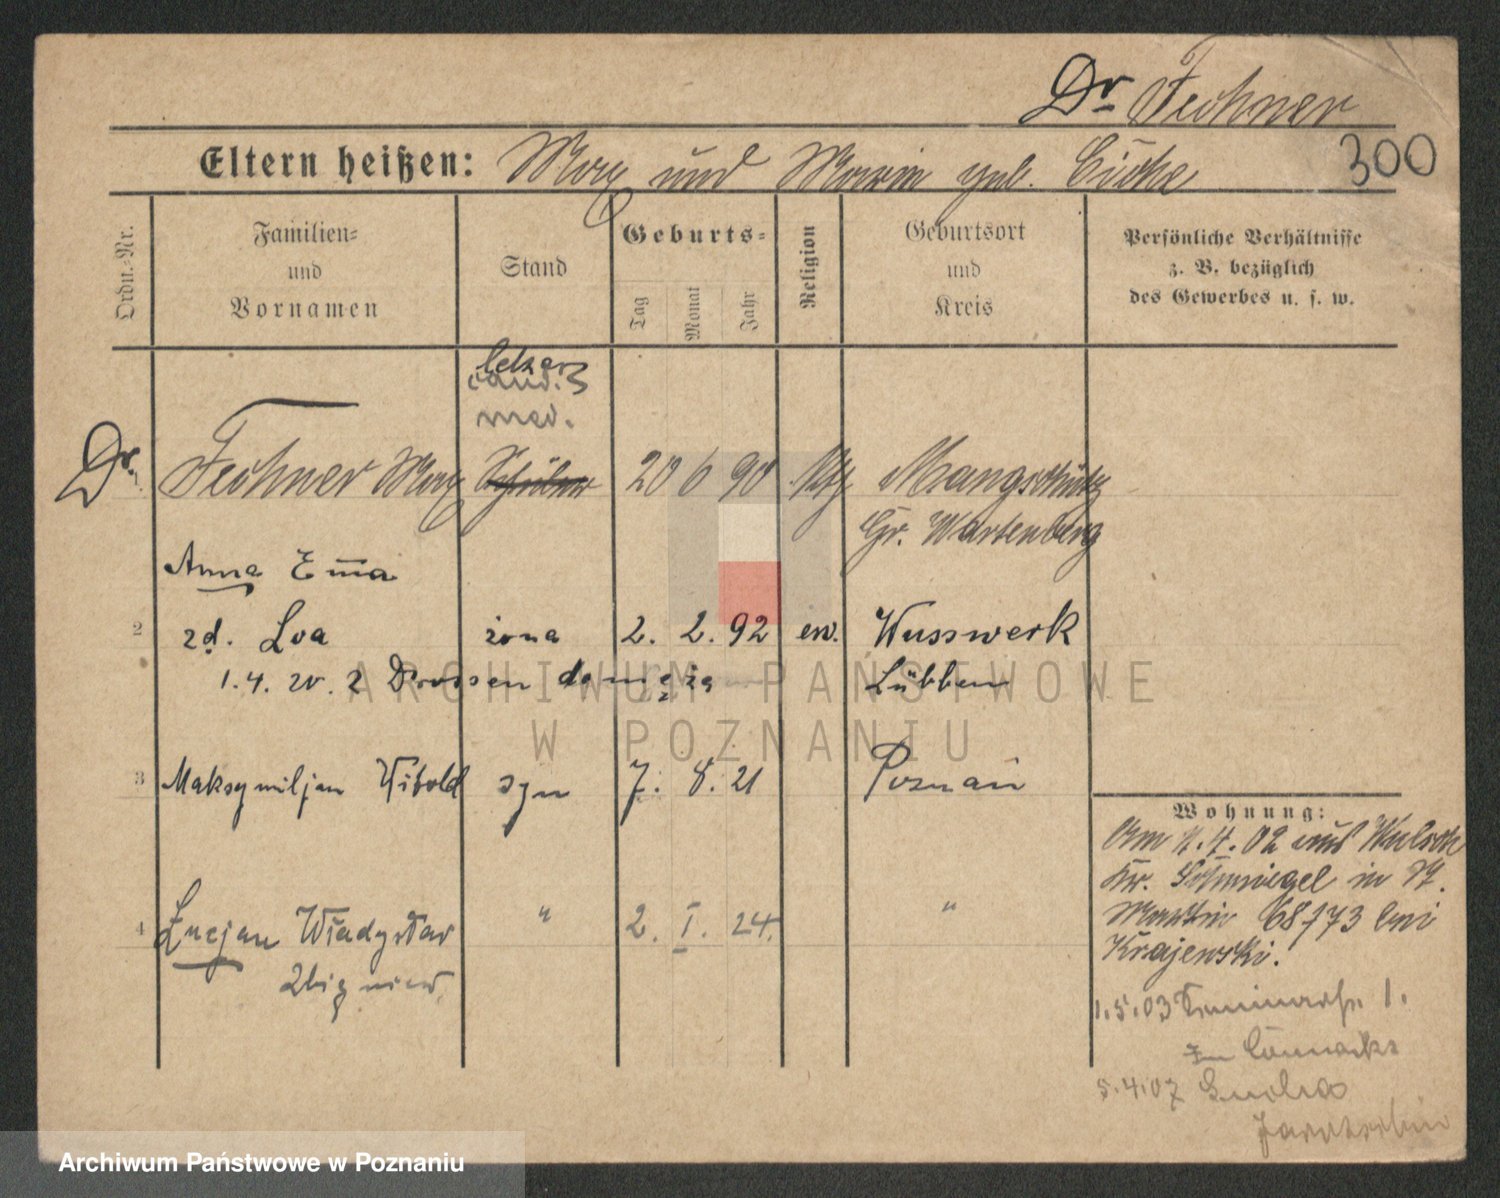 Dr Fechner
300
Eltern heißen: Max und Maria geb.
Ordn.-Nr.
Familien-
und
Vornamen
Stand
Geburts-
Tag
Monat
Jahr
Religion
Geburtsort
und
Kreis
Persönliche Verhältnisse
z. B. bezüglich
des Gewerbes u. s. w.
cand.
med.
Dr. Fechner Max Schüler 20 6 90 Mangschütz
Gr. Wartenberg
Anna Ema
2 zd. Loa żona 2. 2. 92 ew. Wusswerk
1.4. 20. z Drossen do męża Lübben
3 Maksymiljan Witold syn 7. 8. 21 Poznań
4 Lucjan Władysław " 2. I. 24. "
Zbigniew
Wohnung:
Am 1.4.02 aus
Kr. Schmiegel in St.
Martin 68/73 bei
Krajewski.
1.5.03 1.
5.4.07
ARCHIWUM PAŃSTWOWE
W POZNANIU
Archiwum Państwowe w Poznaniu